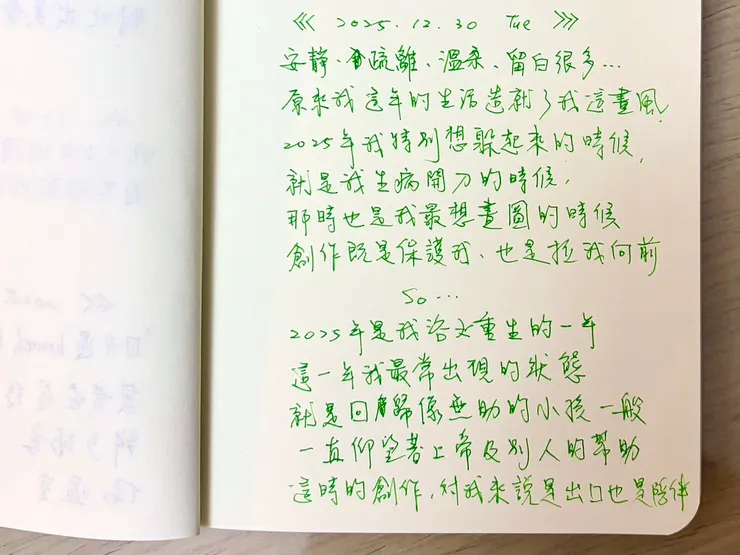 《《 2025.12.30 Tue 》》
安靜、疏離、溫柔、留白很多...
原來我這年的生活造就了我這畫風
2025年我特別想躲起來的時候,
就是我生病開刀的時候,
那時也是我最想畫圖的時候
創作既是保護我、也是拉我向前
So...
2025年是我浴火重生的一年
這一年我最常出現的狀態
就是回歸像無助的小孩一般
一直仰望著上帝及別人的幫助
這時的創作,對我來說是出口也是陪伴